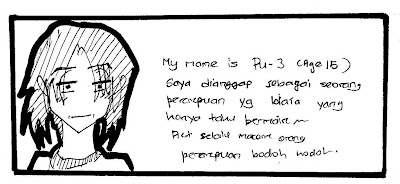 My name is Pu-3 (Age 15)
Saya dianggap sebagai seorang
perempuan yg yang
hanya tahu bermain~
selalu macam orang
perempuan bodoh bodoh.